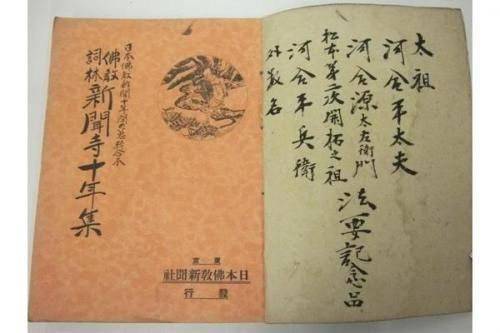 太祖
河合平太夫
河合源太左衛門
松本第二次開拓之祖
河合平兵衛
外数名
法要記念品
佛教
詞林
新聞寺十年集
東京
日本佛教新聞社
發行